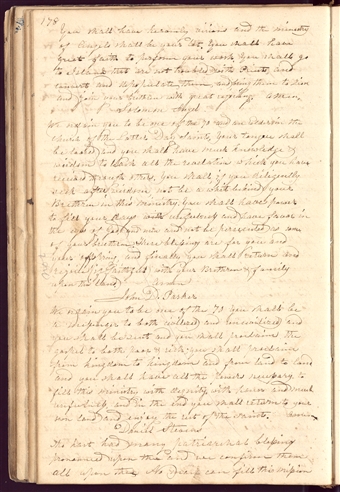 178
You shall have heavenly visions and the ministry
of Angels shall be your lot, you shall have
great faith to perform your work, you shall go
to Islands that are not trodden with Saints, and
convert and them, and bring them to Zion
and your brethren with great rejoicing. Amen.
Solomon Angel
We ordain you to be one of the 70 and an Elder in the
church of the Latter Day Saints, Your tongue shall
be loosed and you shall have much knowledge &
wisdom to teach all the revelations which you have
received & craft others, You shall if you diligently
seek after wisdom not be a whit behind your
Brethren in this ministry. You shall have power
to fill your days with usefulness and have favor in
the eyes of god and men and not be persecuted as some
of your brethren. These blessings are for you and
your offspring, and finally you shall return and
rejoice with your Brethren & family
upon this land. Amen
John D. Parker
We ordain you to be one of the 70 You shall be
a messenger to both civilized and uncivilized and
you shall be sent and you shall proclaim the
gospel to both poor & rich you shall traverse
from kingdom to kingdom and from land to land
and you shall have all the power necessary to
fill this ministry with dignity with honor and much
usefulness and in the end you shall return to your
own land and enjoy the rest of the saints. Amen
Daniel Stevens
Thou hast had many patriarchal blessings
pronounced upon thee and we confirm them
all upon thee. No man can fill this mission